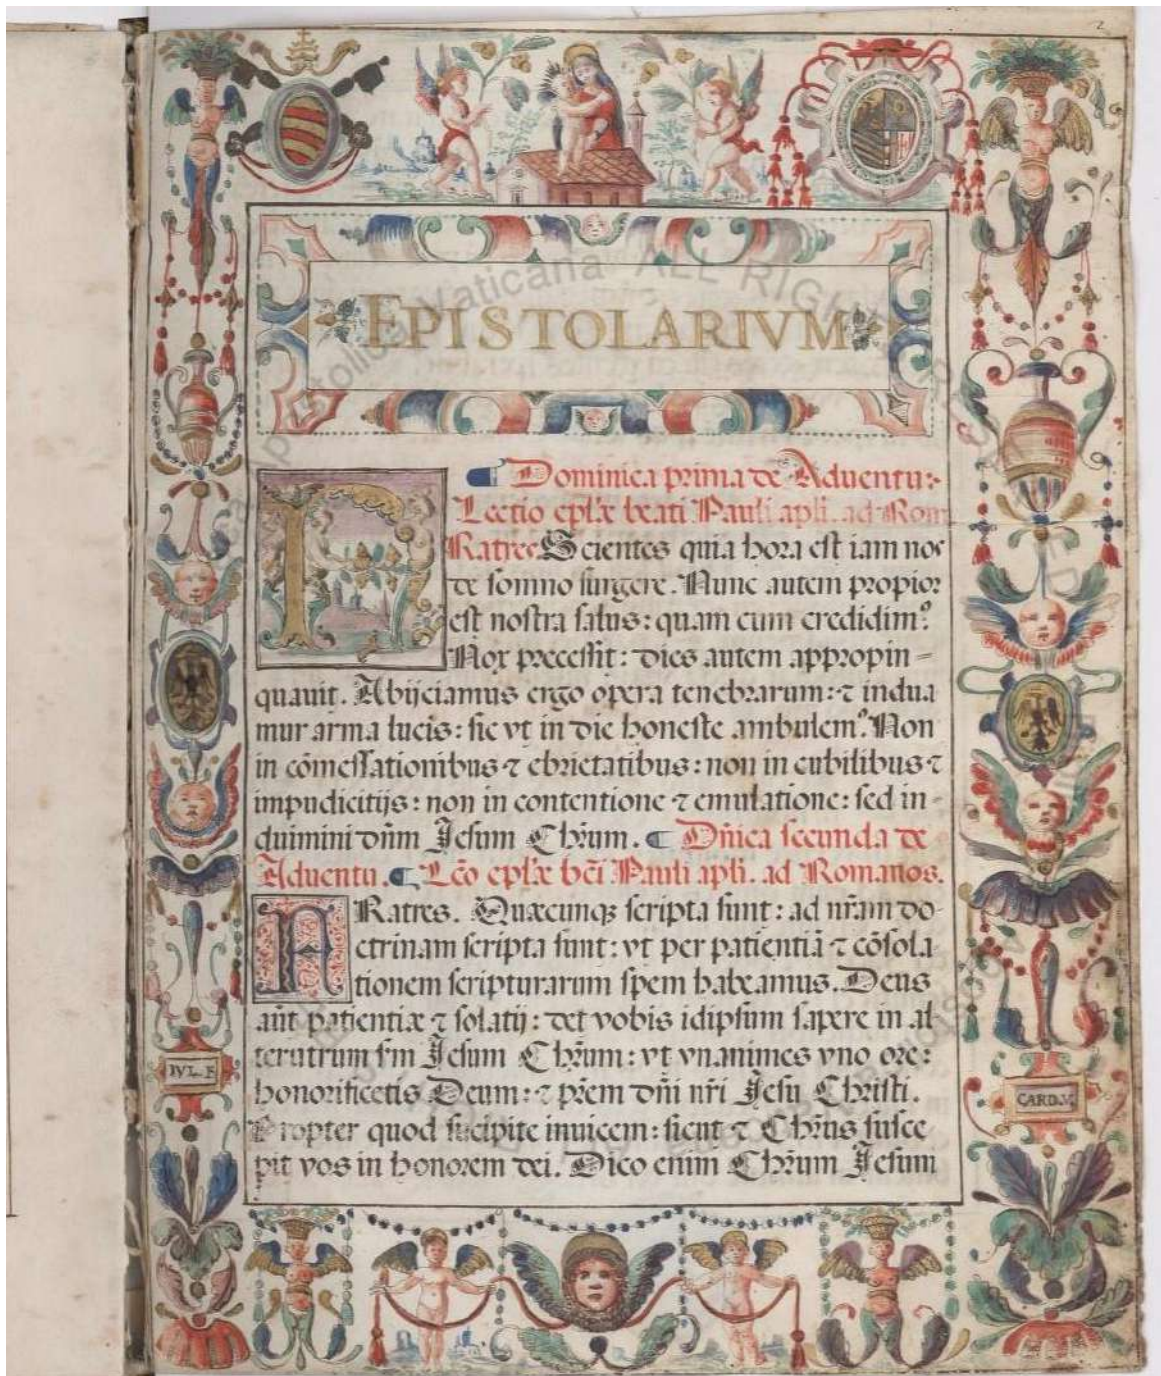 2
EPISTOLARIVM
Dominica prima de Aduentu:
Lectio eplæ beati Pauli apli. ad Rom
Ratres. Scientes quia hora est iam nos
de somno surgere. Nunc autem propior
est nostra salus: quam cum credidimꝰ.
Nox precessit: dies autem appropin=
quauit. Abijciamus ergo opera tenebrarum: ⁊ indua
mur arma lucis: sic vt in die honeste ambulemꝰ. Non
in cōmessationibus ⁊ ebrietatibus: non in cubilibus ⁊
impudicitijs: non in contentione ⁊ emulatione: sed in-
duimini dñm Jesum Chr̃um. ¶ Dñica secunda de
Aduentu. ¶ Lc̃o eplæ bc̃i Pauli apli. ad Romanos.
FRatres. Quæcunqꝫ scripta sunt: ad nr̃am do-
ctrinam scripta sunt: vt per patientiā ⁊ cōsola-
tionem scripturarum spem habeamus. Deus
aũt patientiæ ⁊ solatij: det vobis idipsum sapere in al
terutrum sm̃ Jesum Chr̃um: vt vnanimes vno ore:
honorificetis Deum: ⁊ pr̃em dñi nr̃i Jesu Christi.
Propter quod sucipite inuicem: sicut ⁊ Chr̃us susce
pit vos in honorem dei. Dico enim Chr̃um Jesum
IVL. F.
CARD. V.